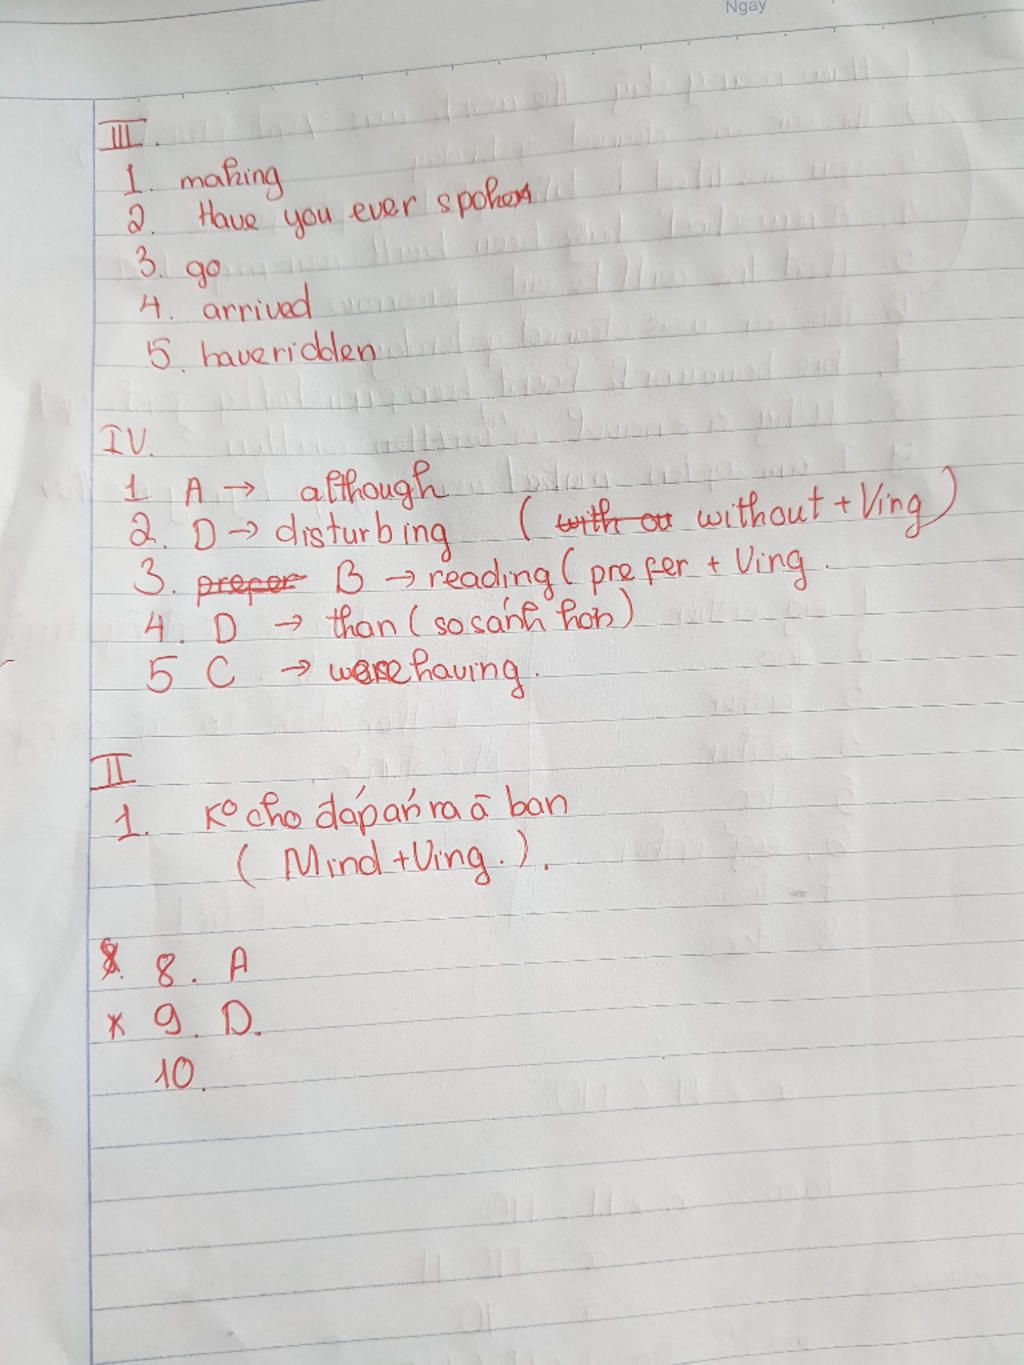 Ngày
III.
1. making
2. Have you ever spoken
3. go
4. arrived
5. have ridden
IV.
1 A → although
2. D → disturbing ( with ou without + Ving )
3. prefer B → reading ( prefer + Ving.
4. D → than ( so sánh hơn )
5 C → were having.
II
1. Ko cho đáp án ra ā ban
( Mind + Ving. ).
8. 8. A
* 9. D.
10.